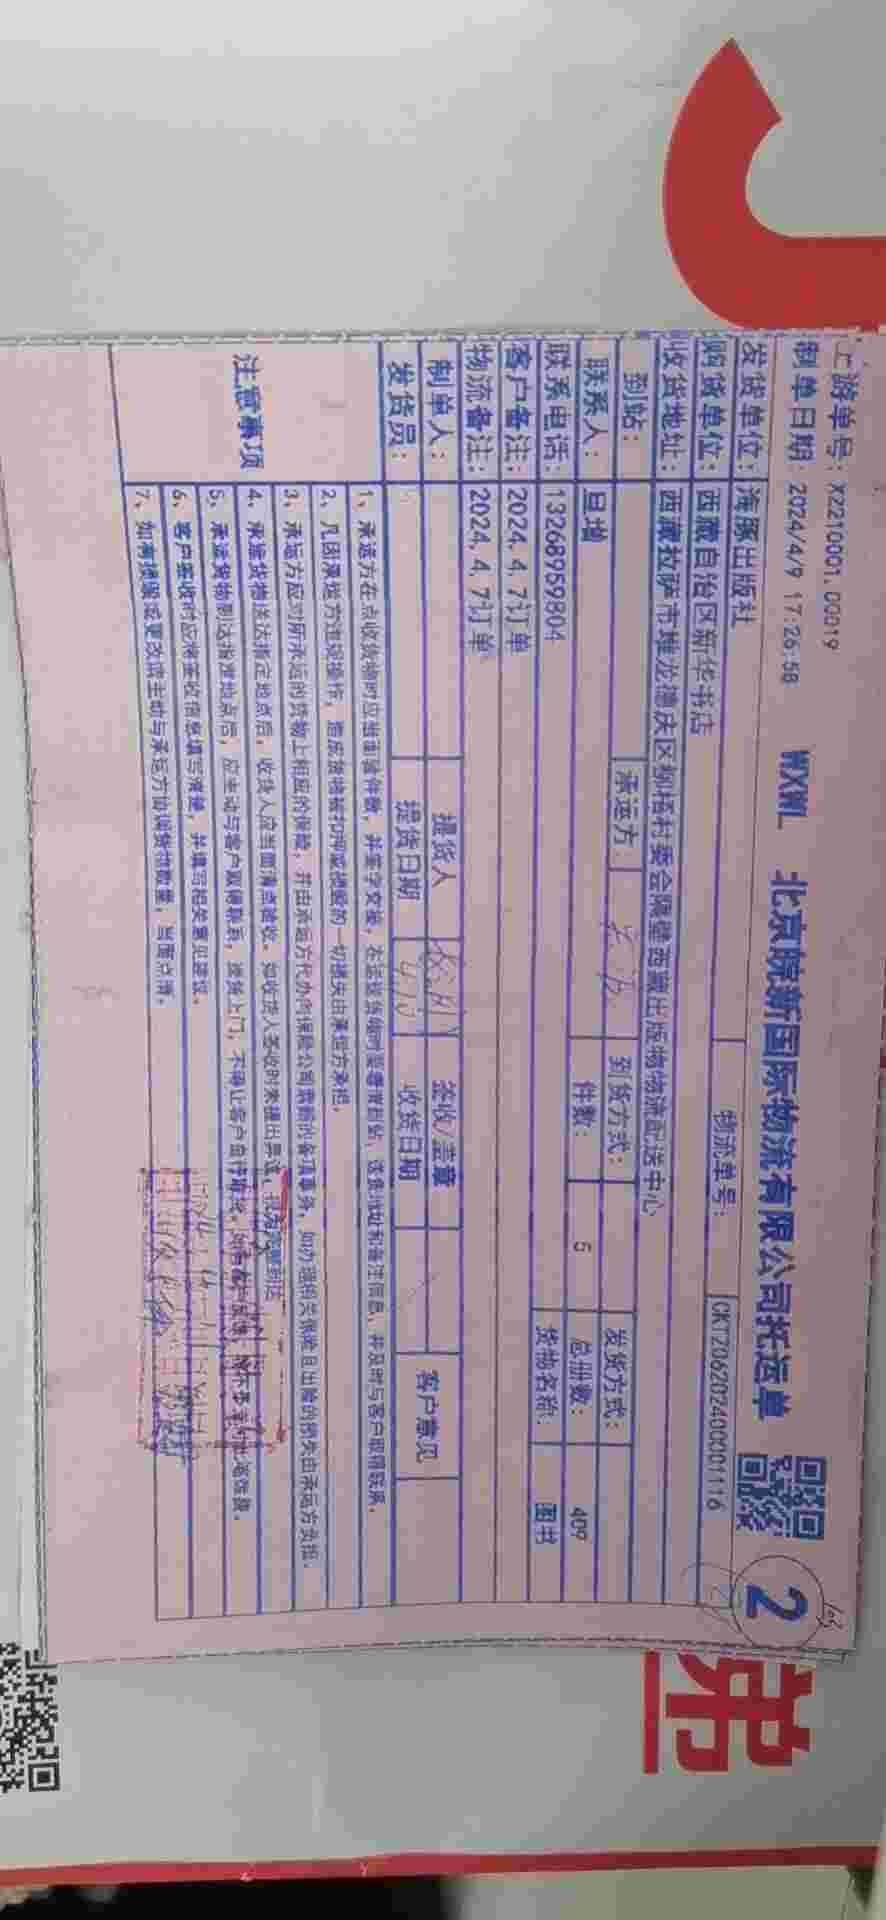 上游单号: X2210001.00019
制单日期: 2024/4/9 17:26:58 WXWL 北京皖新国际物流有限公司托运单 2
发货单位: 海豚出版社 物流单号: CKTZ06202400001116
购货单位: 西藏自治区新华书店
收货地址: 西藏拉萨市堆龙德庆区柳梧村委会隔壁西藏出版物物流配送中心
到站: 承运方: 到货方式: 发货方式:
联系人: 旦增 件数: 5 总册数: 409
联系电话: 13268959804 货物名称: 图书
客户备注: 2024.4.7订单
物流备注: 2024.4.7订单
制单人: 提货人 签收/盖章 客户意见
发货员: 提货日期 收货日期
注意事项
1、承运方在点收货物时应当面验件数，并签字交接，在运输货物时要看清到站，详细地址和备注信息，并及时与客户取得联系。
2、凡因承运方违规操作，造成货物被扣押或挖股的一切损失由承运方承担。
3、承运方应对所承运的货物上相应的保险，并由承运方代办向保险公司索赔的各项事务，如办理相关保险且出险的损失由承运方负担。
4、承运货物送达指定地点后，收货人应当面清点验收。如收货人签收时未提出异议，视为完整到达
5、承运货物到达指定地点后，应主动与客户取得联系，送货上门，不得让客户自行取货。
6、客户签收时应将签收信息填写清楚，并填写相关意见建议。
7、如有损毁或更改请主动与承运方协调货物数量，当面点清。
弟